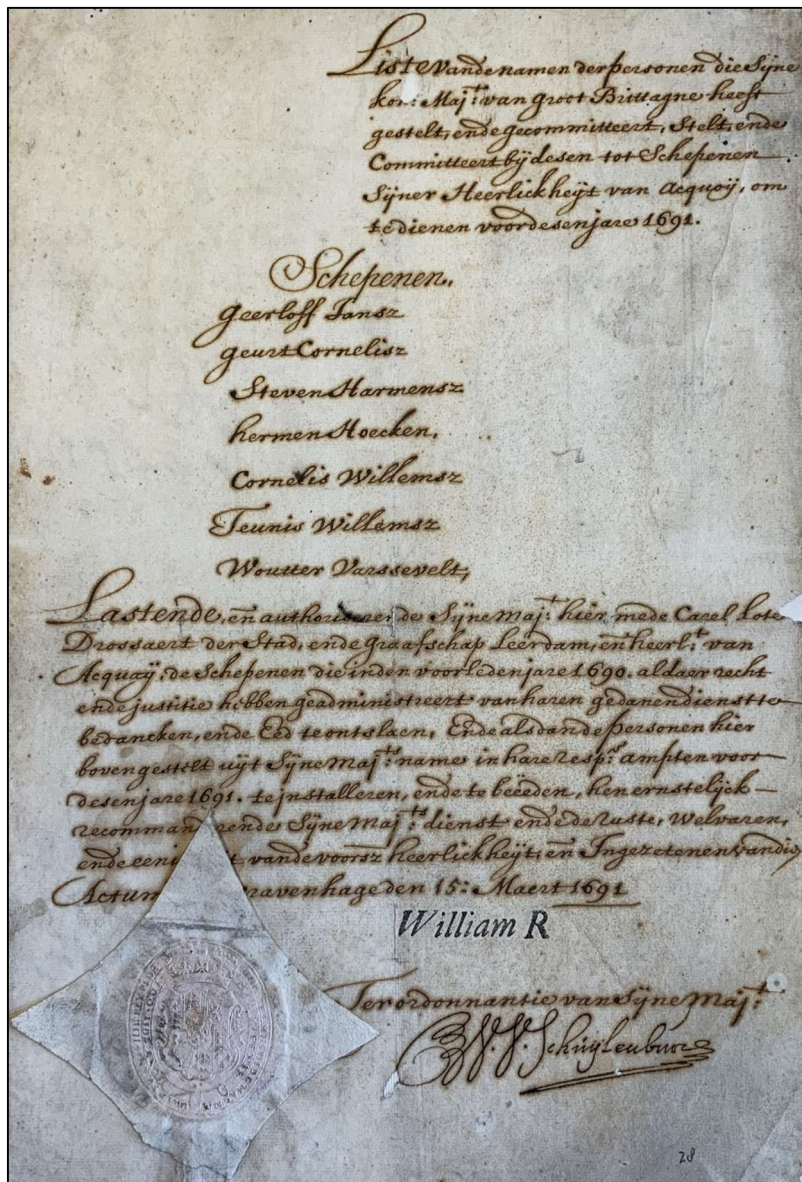 Liste vande namen der persoonen die Sijne
kon: Maj:t van Groot Brittagne heeft
gestelt, ende gecommitteert, Stelt, ende
Committeert bij desen tot Schepenen
Sijner Heerlickheijt van Acquoij, om
te dienen voor desen jare 1691.
Schepenen,
Geerloff Jansz
Geurt Cornelisz
Steven Harmensz
hermen Hoecken,
Cornelis Willemsz
Teunis Willemsz
Woutter Varssevelt,
Lastende, en authoriserende Sijne Maj:t hier mede Carel Lote
Drossaert der Stad, ende Graafschap Leerdam, en heerl:t van
Acquaij, de Schepenen die inden voorleden jare 1690. aldaer recht
ende justitie hebben geadministreert van haren gedanen dienst te
bedancken, ende Eed te ontslaen, Ende als dan de persoonen hier
boven gestelt uijt Sijne Maj:ts name in hare resp:e ampten voor
desen jare 1691. te installeren, ende te beëeden, hen ernstelijck
recommanderende Sijne Maj:ts dienst ende de ruste, welvaren,
ende vande voorsz heerlickheijt, en Ingezetenen van dien
Actum ravenhage den 15: Maert 1691
William R
Ter ordonnantie van Sijne Maj:t
W. V. Schuÿlenburg
28